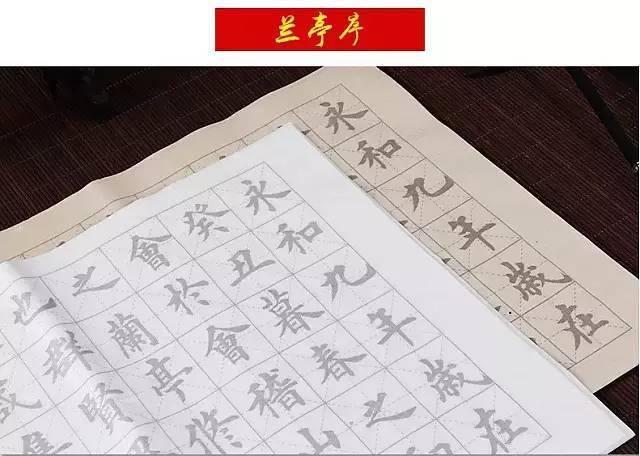 兰亭序
永和九年歲在
永和九年歲在
癸丑暮春之
會於會稽山
之蘭亭修
也群賢
咸